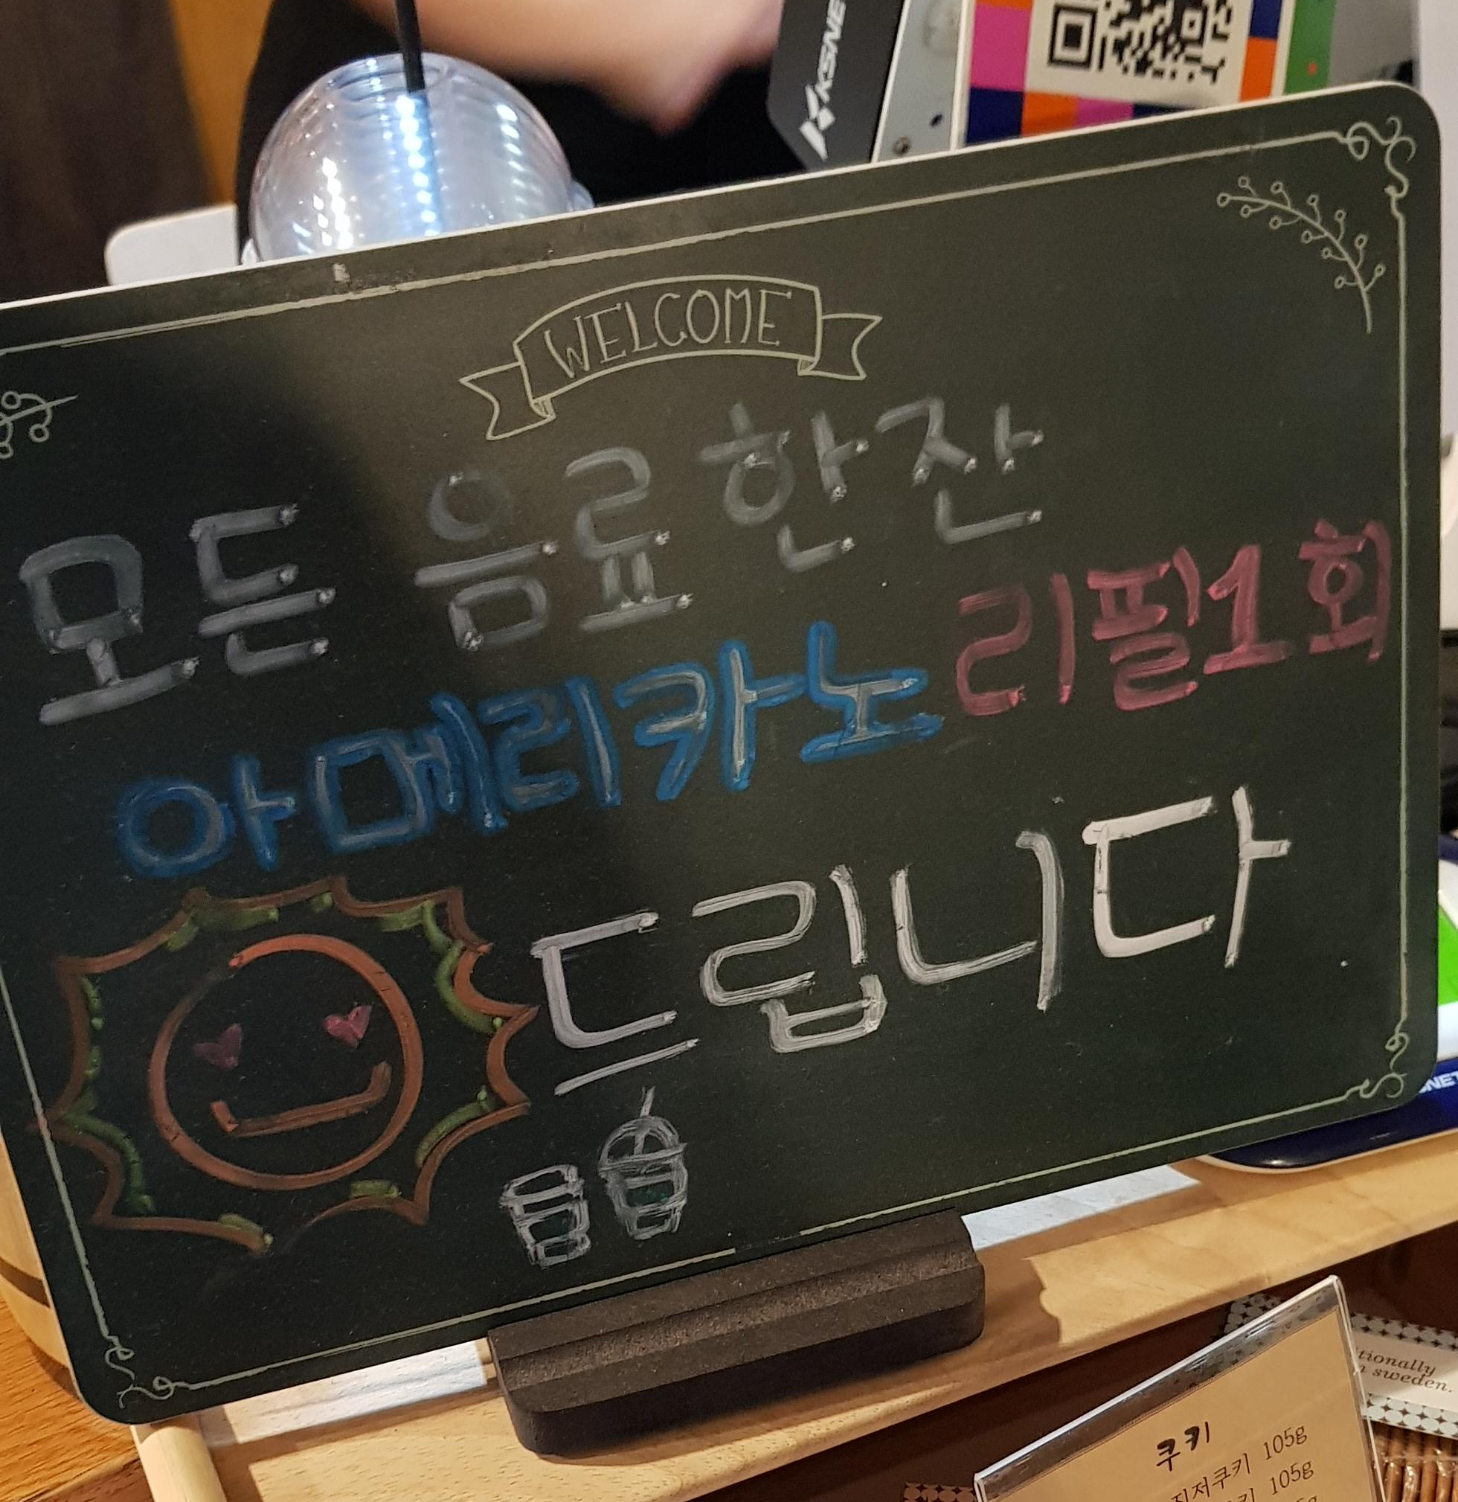 KSNET
WELCOME
모든 음료 한잔
아메리카노 리필1회
드립니다
쿠키
진저쿠키 105g
105g
tionally
sweden.